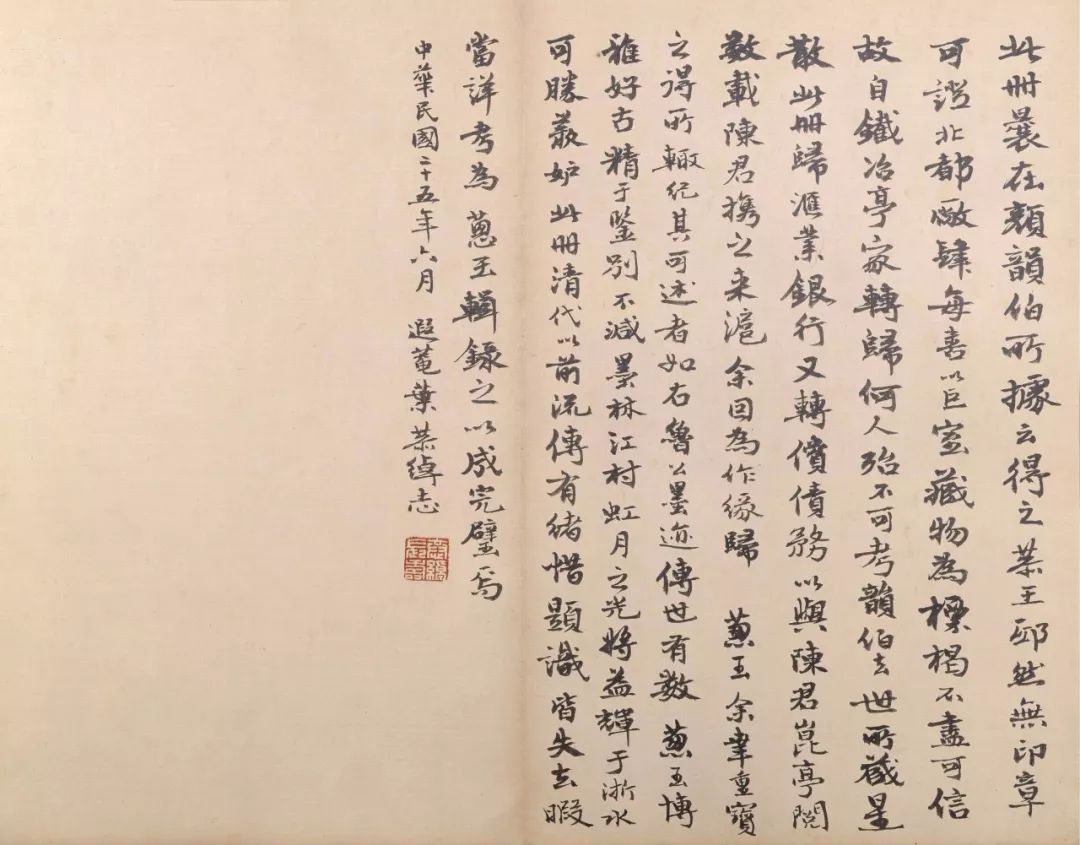 此册曩在顏韻伯所據云得之恭王邸然無印章
可證北都廠肆每喜以巨室藏物為標榜不盡可信
故自鐵冶亭家轉歸何人殆不可考韻伯去世所藏星
散此册歸滙業銀行又轉償債務以與陳君崑亭閱
數載陳君攜之来滬余因為作緣歸 蔥玉余幸重寶
之得所輒紀其可述者如右魯公墨迹傳世有數蔥玉博
雅好古精于鑒別不減墨林江村虹月之光將益輝于浙水
可勝羨妒此册清代以前流傳有緒惜題識皆失去暇
當詳考為 蔥玉輯錄之以成完璧焉
中華民國二十五年六月 遐菴葉恭綽志